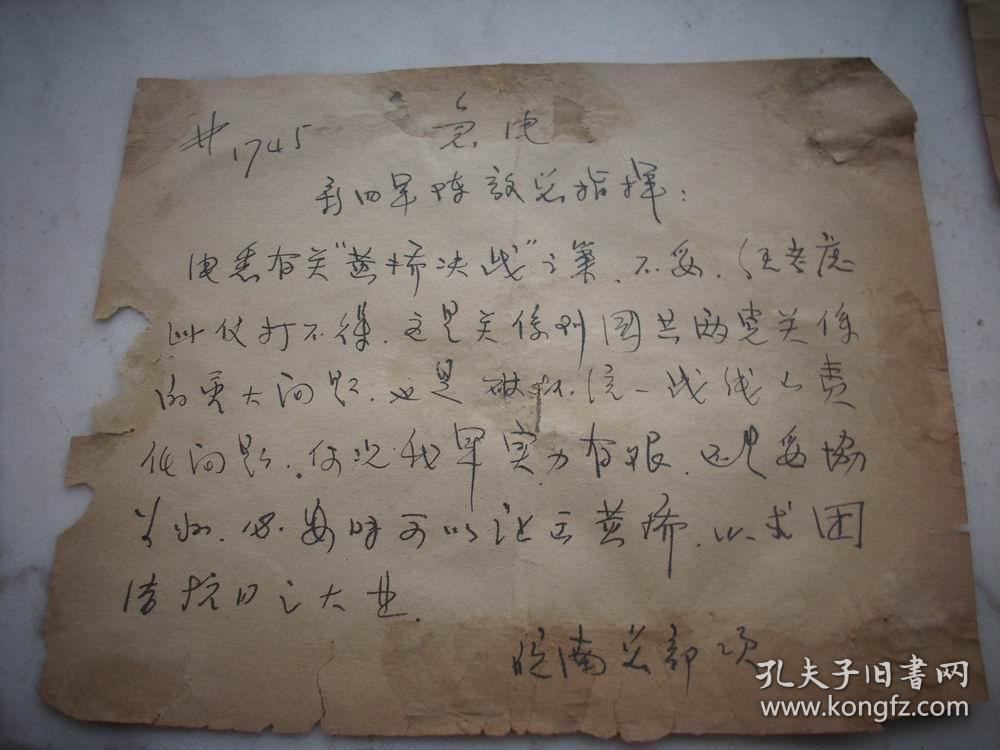 #1745 急电
新四军陈毅总指挥：
电悉有关“黄桥决战”之策、不妥、但考虑
此仗打不得、这是关係到国共两党关係
的重大问题、也是破坏统一战线之责
任问题、何况我军实力有限、还是妥协
为好、必要时可以让出黄桥、以求团
结抗日之大业.
皖南总部 项
孔夫子旧书网
www.kongfz.com